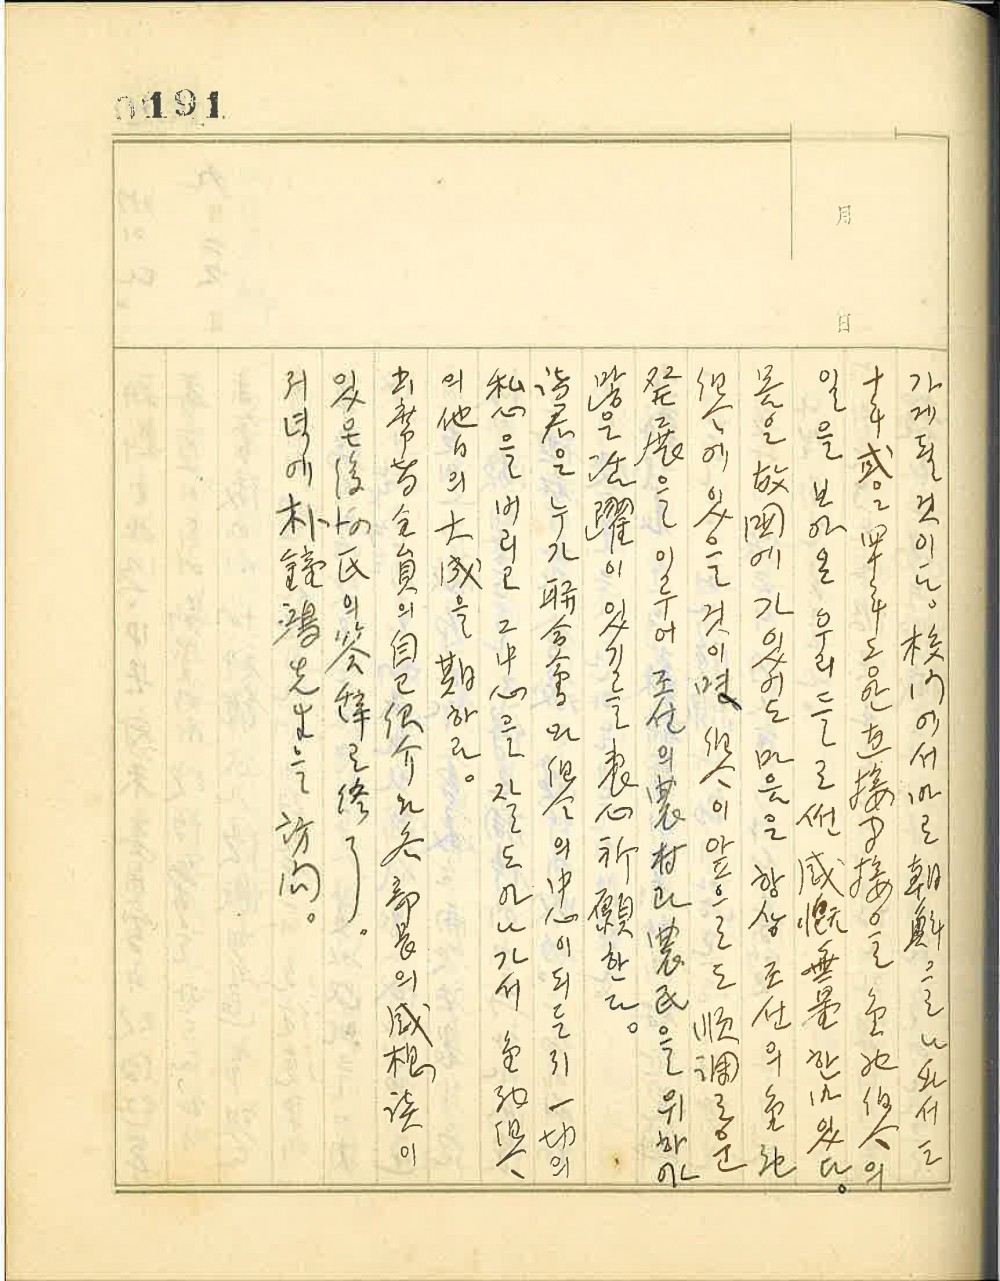 0191
月
日
가게될 것이는. 校內에서 바로 朝鮮으를 나와서도
十年 或은 四年 동안 直接 間接으를 金融組合의
일을 보아온 우리들로썬 感慨無量한バ있다.
몸은 故國에 가있어도 마음은 항상 조선의 金融
組合에 있을 것이며 組合이 앞으로도 順調로운
発展을 이루어 조선의 農村과 農民을 위하야
많은 活躍이 있기를 衷心祈願한다.
諸君은 누가 聯合會와 組合의 中心이 되든지 一切의
私心을 버리고 그 中心을 잘 도아나가서 金融組合
의 他日의 大成을 期하라.
出席者 全員의 自己紹介와 各部長의 感想談이
있은後 氏의 答辭로 終了.
저녁에 朴鍾鴻先生을 訪問.